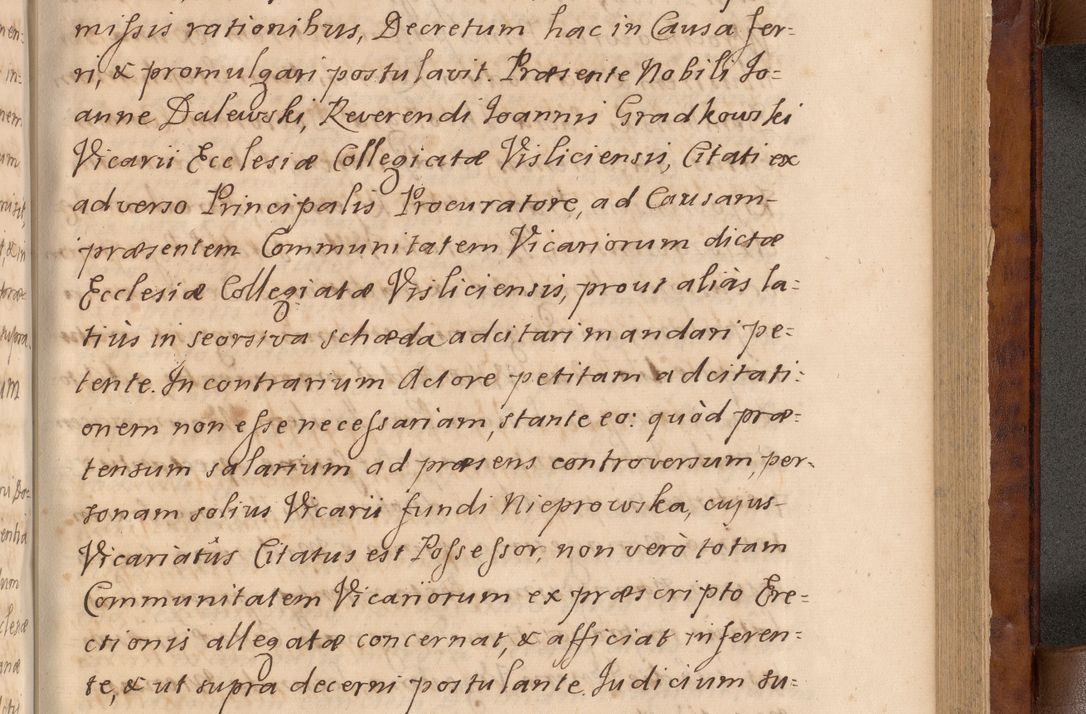 miſsis rationibus, Decretum hac in Causa fer-
ri, & promulgari postulavit. Præsente Nobili Jo=
anne Dalewski, Reverendi Joannis Gradkowski
Vicarii Ecclesiæ Collegiatæ Visliciensis, Citati ex
adverso Principalis Procuratore, ad Causam-
præsentem Communitatem Vicariorum dictæ
Ecclesiæ Collegiatæ Visliciensis, prout aliàs la=
tiùs in seorsiva schæda adcitari mandari pe=
tente. In contrarium Actore petitam adcitati=
onem non eſse neceſsariam, stante eo: quòd præ=
tensum salarium ad præsens controversum, per-
sonam solius Vicarii fundi Nieprowska, cujus-
Vicariatûs Citatus est Poſseſsor, non verò totam
Communitatem Vicariorum ex præscripto Ere=
ctionis allegatæ concernat, & afficiat inferen=
te, & ut supra decerni postulante. Judicium su=